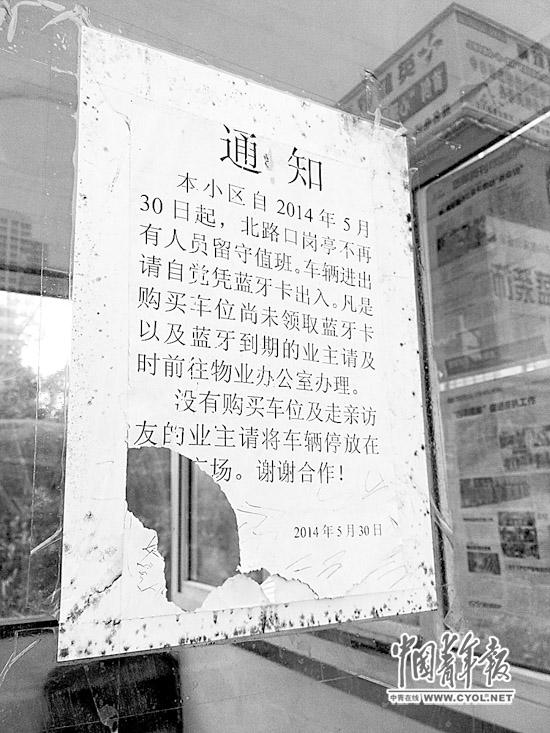 通知
本小区自2014年5月
30日起，北路口岗亭不再
有人员留守值班。车辆进出
请自觉凭蓝牙卡出入。凡是
购买车位尚未领取蓝牙卡
以及蓝牙到期的业主请及
时前往物业办公室办理。
没有购买车位及走亲访
友的业主请将车辆停放在
广场。谢谢合作！
2014年5月30日
中国青年报
中青在线 WWW.CYOL.NET